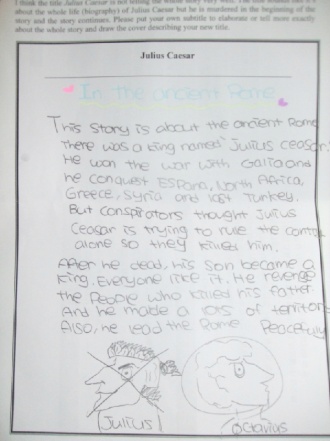 I think the title Julius Caesar is not telling the whole story very well. The title sounds like it is
about the whole life (biography) of Julius Caesar but he is murdered in the beginning of the
story and the story continues. Please put your own subtitle to elaborate or tell more exactly
about the whole story and draw the cover describing your new title.
Julius Caesar
In the ancient Rome
This story is about the ancient Rome
There was a king named Julius ceasar.
He won the war with Gallia and
he conquest Espona, North Africa,
Greece, Syria and last Turkey.
But conspirators thought Julius
Ceasar is trying to rule the
alone so they killed him.
After he dead, his son became a
king. Everyone like it. He revenge
the people who killed his father.
And he made a lots of territory
Also, he lead the Rome Peacefully
Julius
Octavius